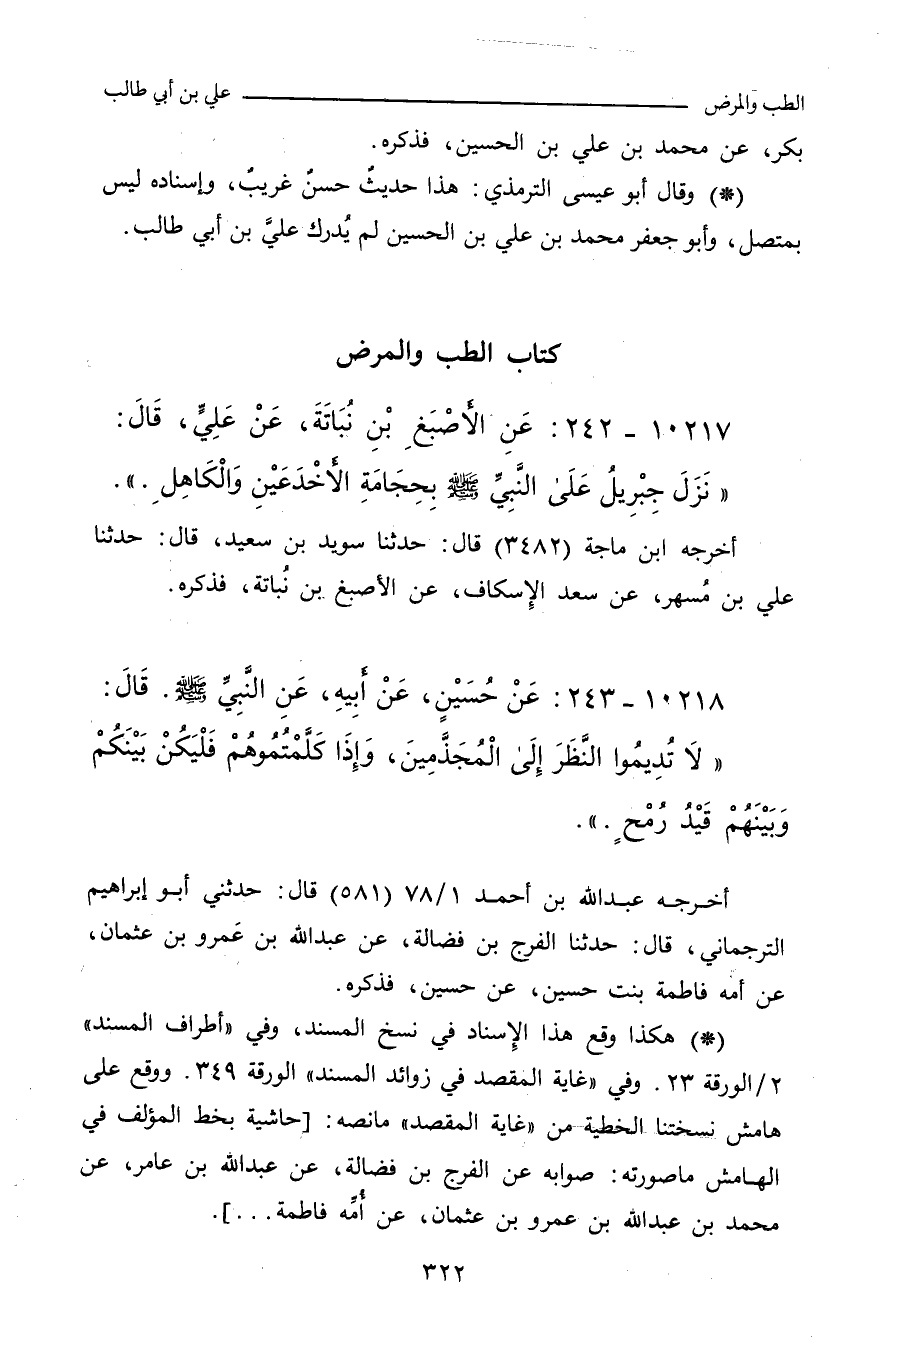 الطب والمرض ــــــــــــ علي بن أبي طالب
بكر، عن محمد بن علي بن الحسين، فذكره.
(*) وقال أبو عيسى الترمذي: هذا حديثٌ حسنٌ غريبٌ، وإسناده ليس
بمتصل، وأبو جعفر محمد بن علي بن الحسين لم يُدرك عليَّ بن أبي طالب.
كتاب الطب والمرض
١٠٢١٧ ـ ٢٤٢: عَنِ الْأَصْبَغِ بْنِ نُبَاتَةَ، عَنْ عَلِيٍّ، قَالَ:
« نَزَلَ جِبْرِيلُ عَلَى النَّبِيِّ ﷺ بِحِجَامَةِ الْأَخْدَعَيْنِ وَالْكَاهِلِ.».
أخرجه ابن ماجة (٣٤٨٢) قال: حدثنا سويد بن سعيد، قال: حدثنا
علي بن مُسهر، عن سعد الإسكاف، عن الأصبغ بن نُباتة، فذكره.
١٠٢١٨ ـ ٢٤٣: عَنْ حُسَيْنٍ، عَنْ أَبِيهِ، عَنِ النَّبِيِّ ﷺ. قَالَ:
« لَا تُدِيمُوا النَّظَرَ إِلَى الْمُجَذَّمِينَ، وَإِذَا كَلَّمْتُمُوهُمْ فَلْيَكُنْ بَيْنَكُمْ
وَبَيْنَهُمْ قَيْدُ رُمْحٍ.».
أخرجه عبدالله بن أحمد ٧٨/١ (٥٨١) قال: حدثني أبو إبراهيم
الترجماني، قال: حدثنا الفرج بن فضالة، عن عبدالله بن عَمرو بن عثمان،
عن أمه فاطمة بنت حسين، عن حسين، فذكره.
(*) هكذا وقع هذا الإسناد في نسخ المسند، وفي «أطراف المسند»
٢/الورقة ٢٣. وفي «غاية المقصد في زوائد المسند» الورقة ٣٤٩. ووقع على
هامش نسختنا الخطية من «غاية المقصد» مانصه: [حاشية بخط المؤلف في
الهامش ماصورته: صوابه عن الفرج بن فضالة، عن عبدالله بن عامر، عن
محمد بن عبدالله بن عمرو بن عثمان، عن أُمِّه فاطمة...].
٣٢٢